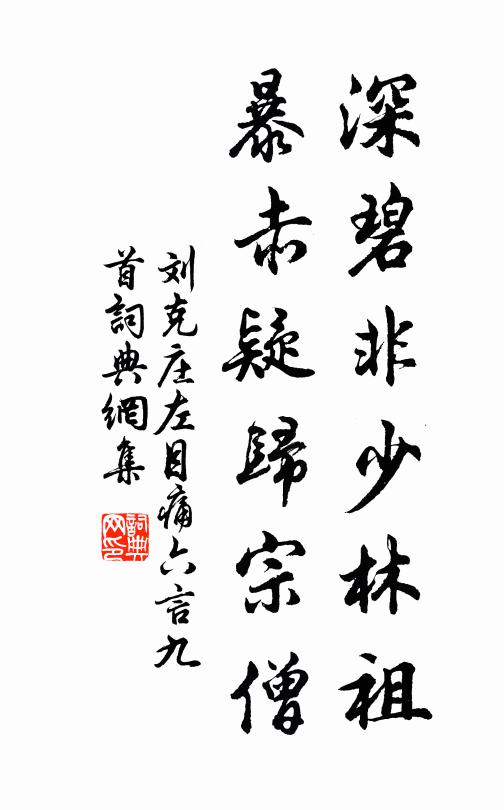 深碧非少林祖
暴赤疑歸宗僧
刘克庄左目痛六言九
首詞典網集
詞典网印